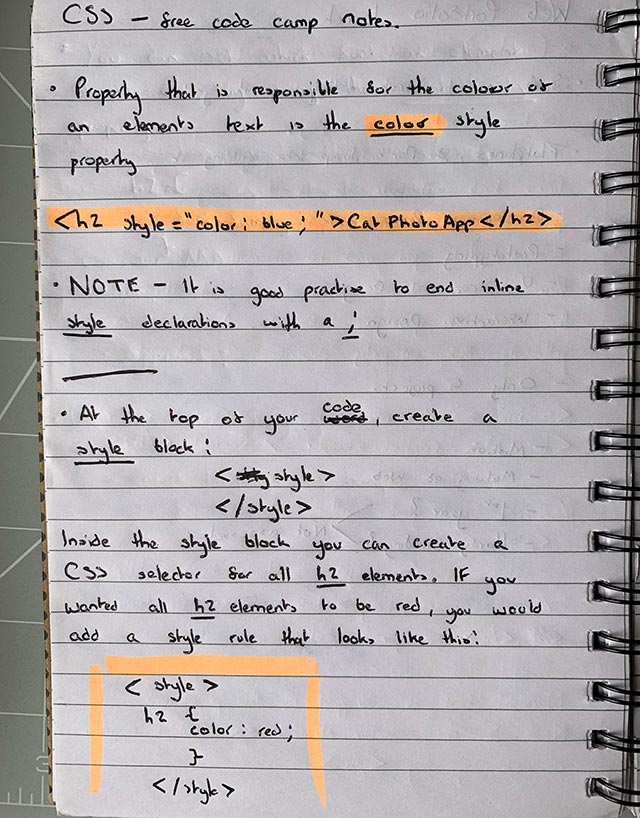 CSS – free code camp notes.
• Property that is responsible for the colour of
an elements text is the color style
property
<h2 style="color: blue;">Cat Photo App</h2>
• NOTE – It is good practise to end inline
style declarations with a ;
• At the top of your code, create a
style block:
<style>
</style>
Inside the style block you can create a
CSS selector for all h2 elements. IF you
wanted all h2 elements to be red, you would
add a style rule that looks like this:
<style>
h2 {
color: red;
}
</style>